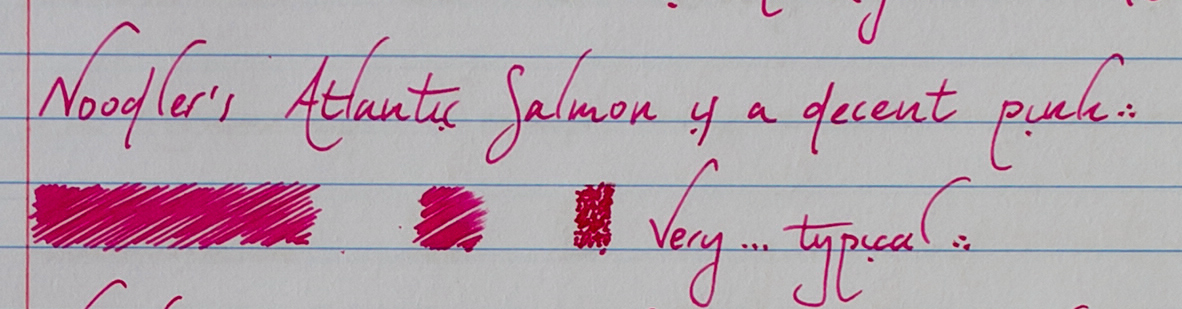 Noodler's Atlantic Salmon is a decent pink.
Very... typical.